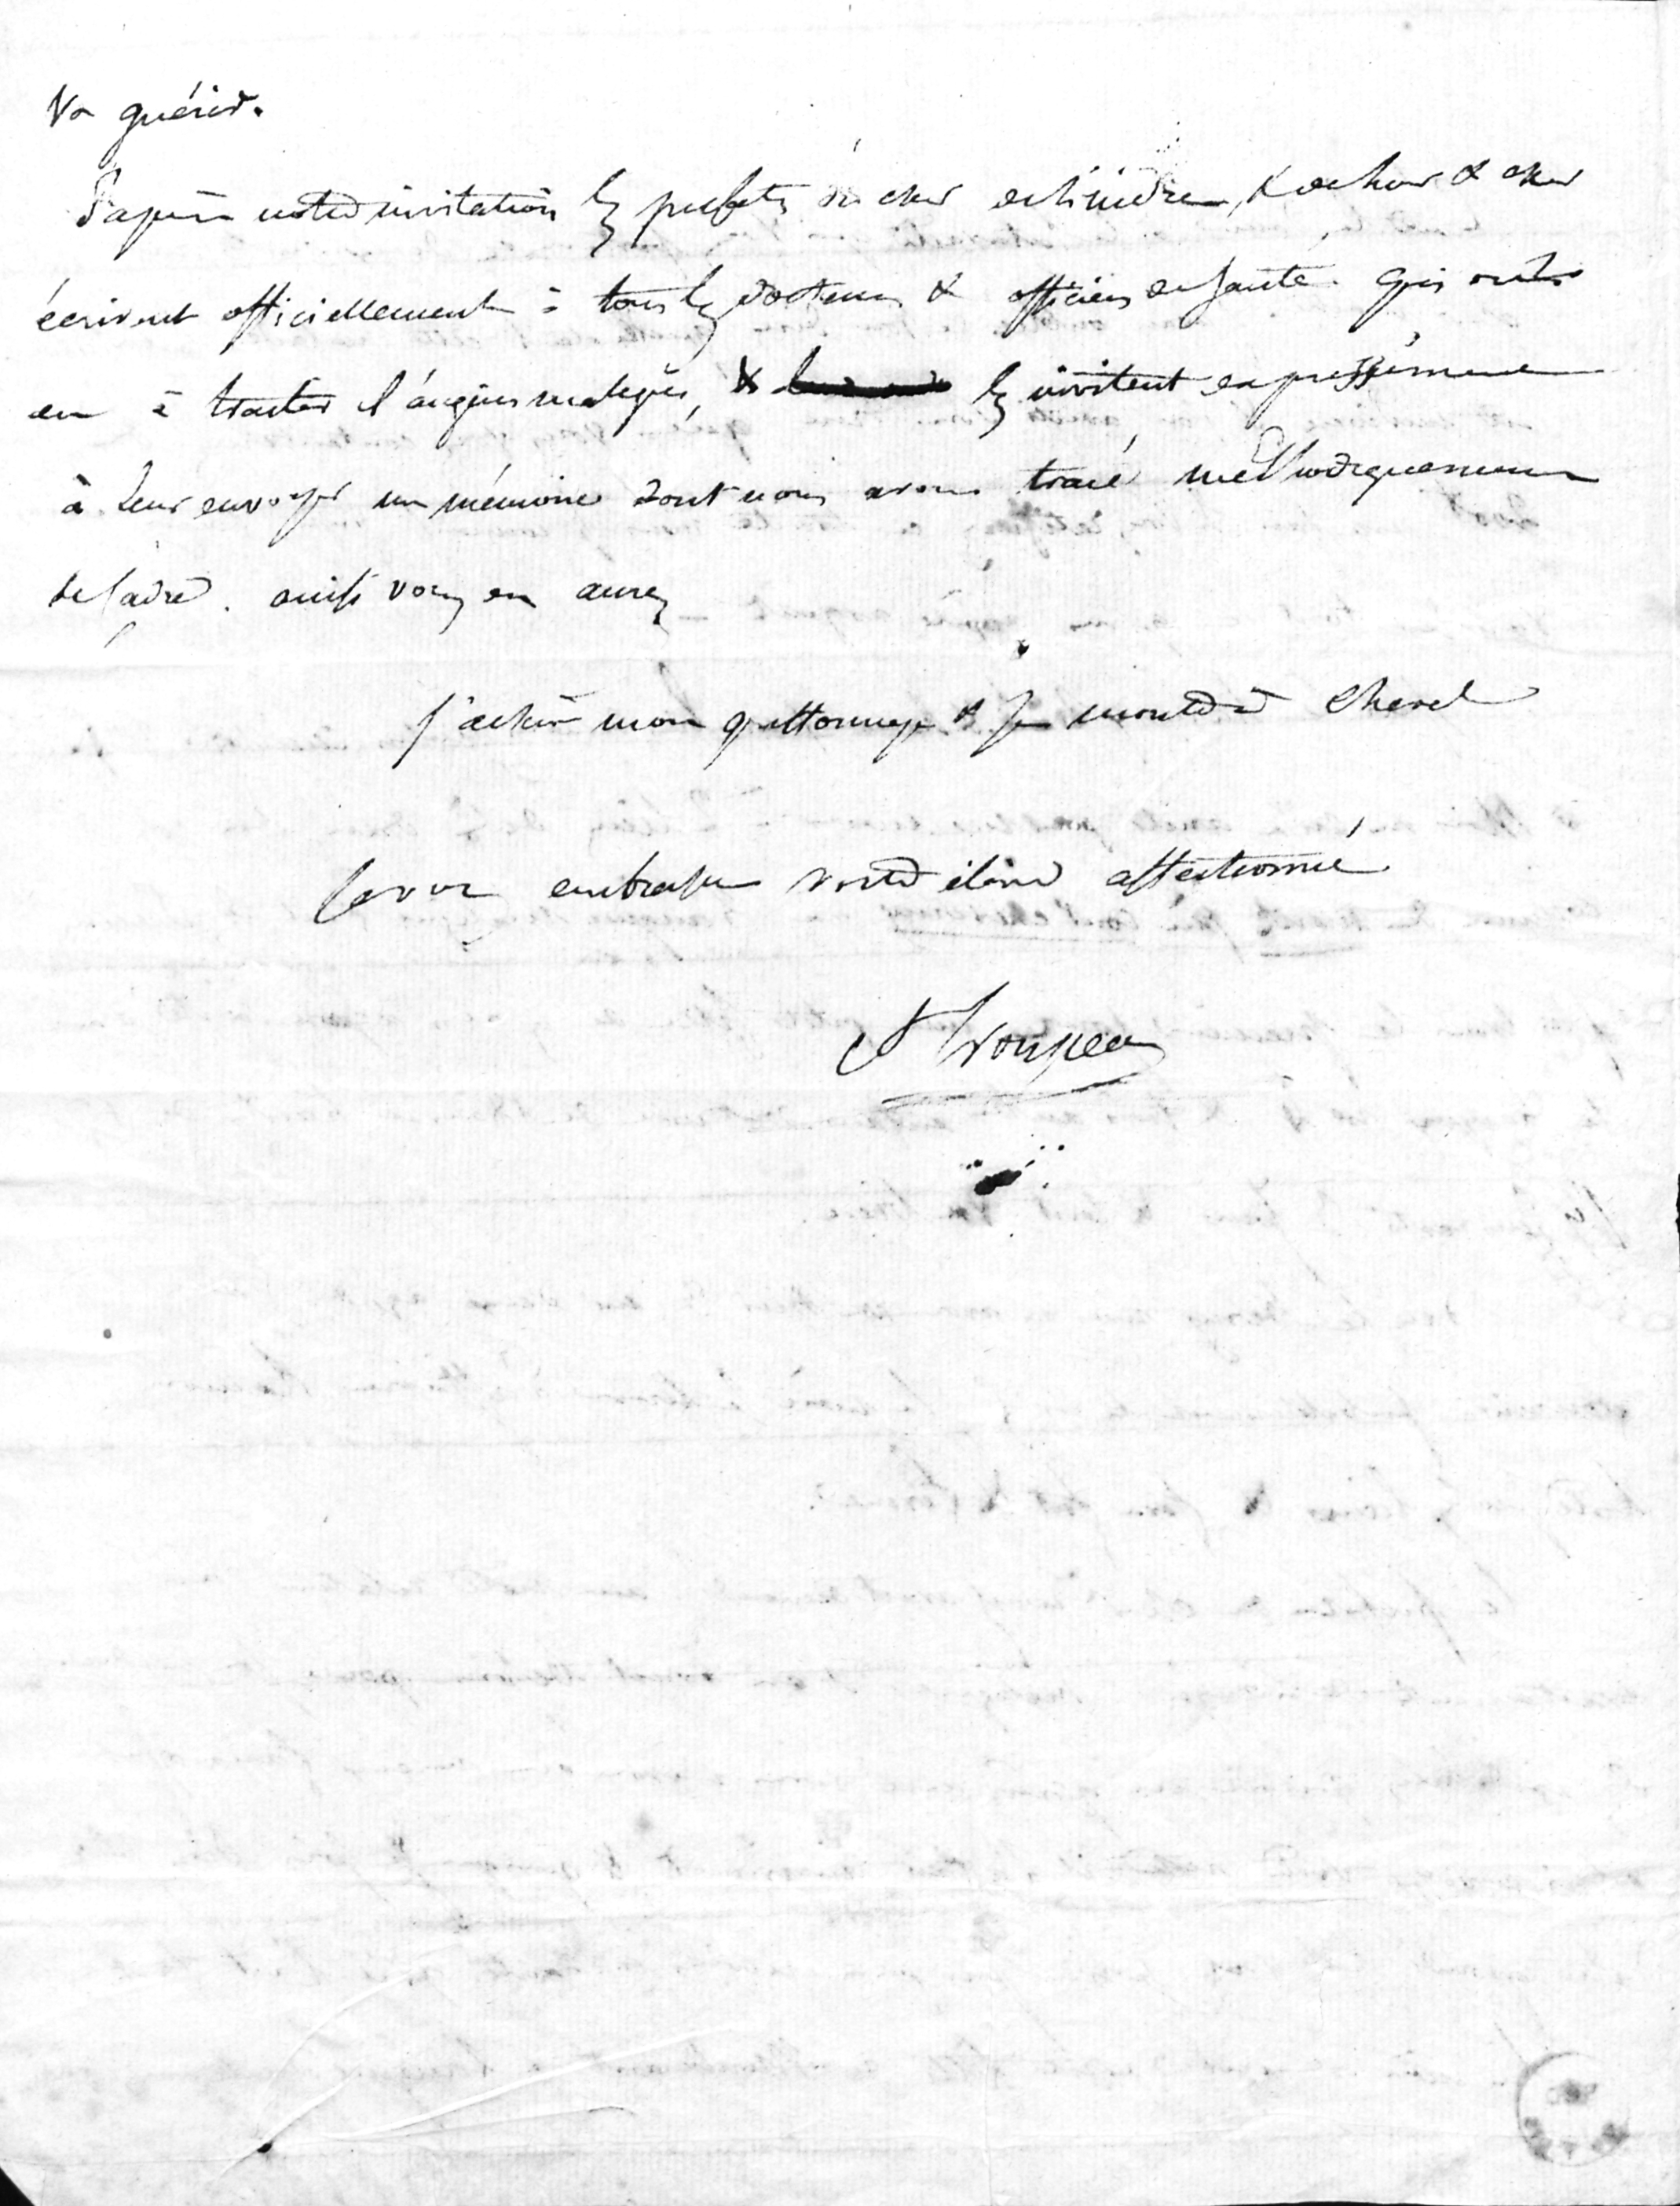 va guérir.
D'après notre invitation les préfets du cher de l'indre, & loir & cher
écrivent officiellement à tous les docteurs & officiers de santé qui ont
eu à traiter l'angine maligne, & les invitent expressément
à leur envoyer un mémoire dont nous avons tracé méthodiquement
le cadre. ainsi vous en aurez
j'achève mon griffonnage & je monte à cheval
Je vous embrasse votre élève affectionné
A Trousseau